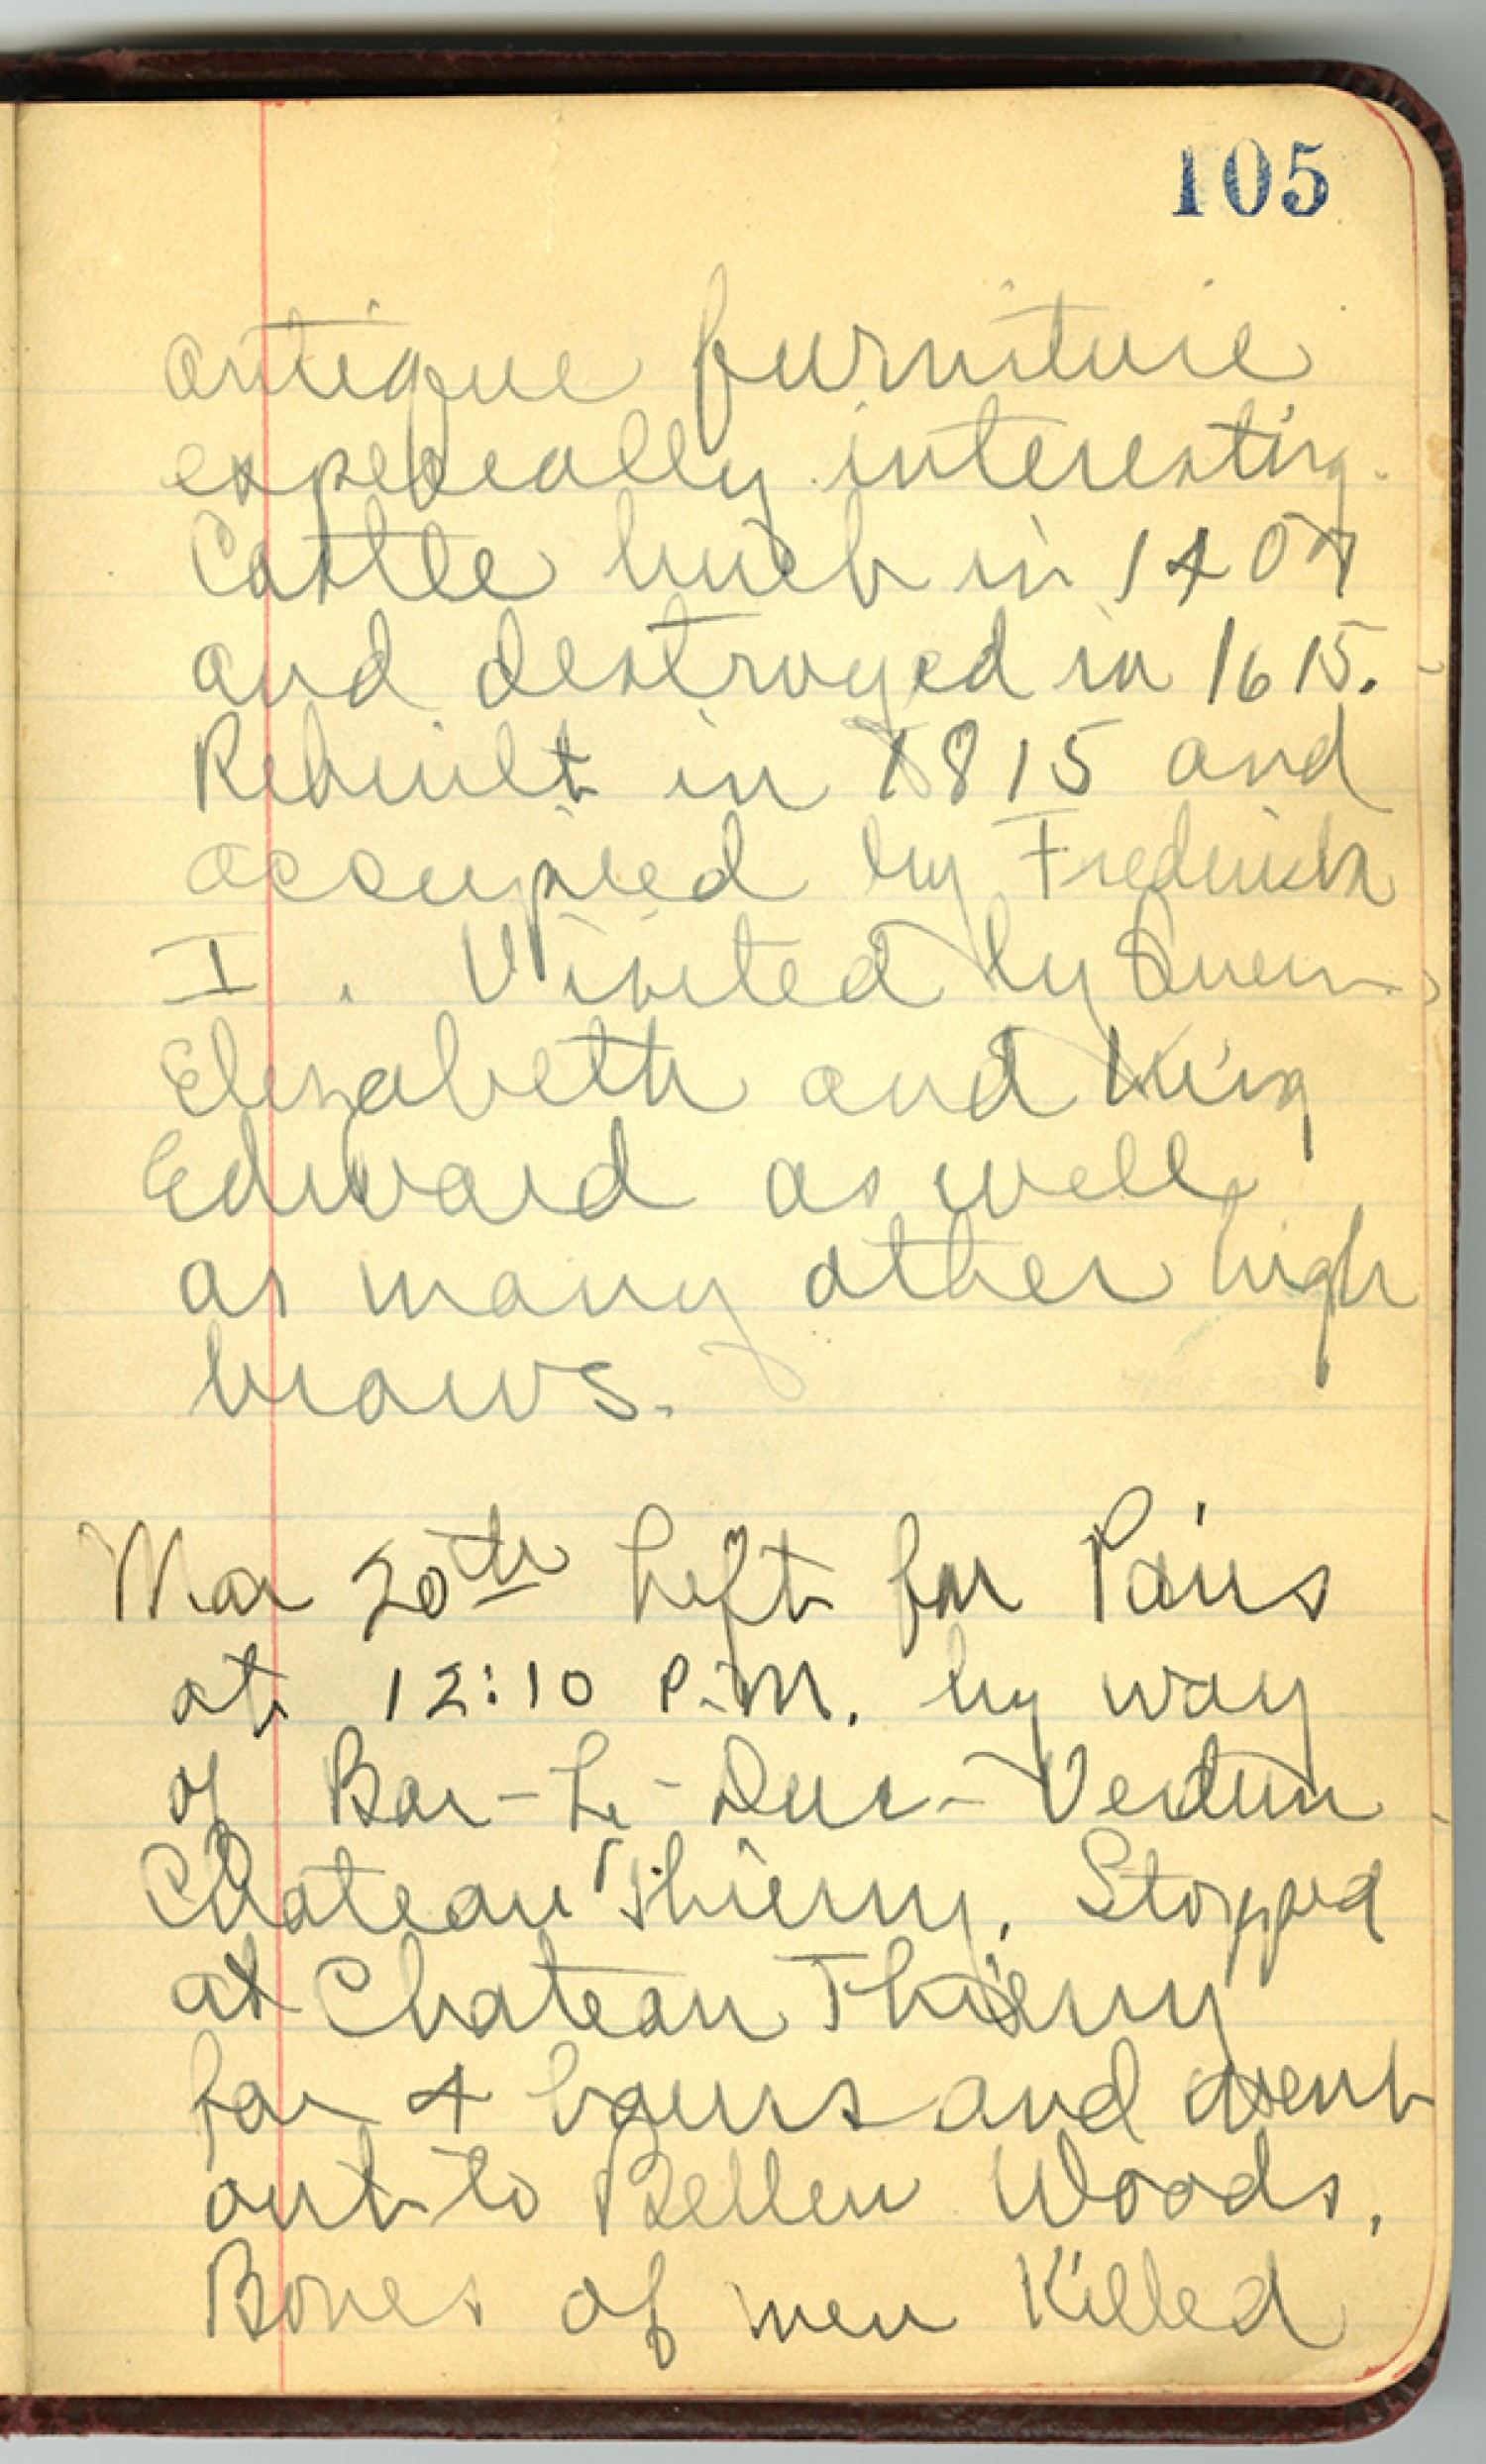 105
antique furniture
especially interesting.
Castle built in 1407
and destroyed in 1615.
Rebuilt in 1815 and
occupied by Frederick
I. Visited by Queen
Elizabeth and King
Edward as well
as many other high
brows.
Mar 20th Left for Paris
at 12:10 P.M. by way
of Bar-Le-Duc-Verdun
Chateau Thierry. Stopped
at Chateau Thierry
for 4 hours and went
out to Belleu Woods.
Bones of men killed